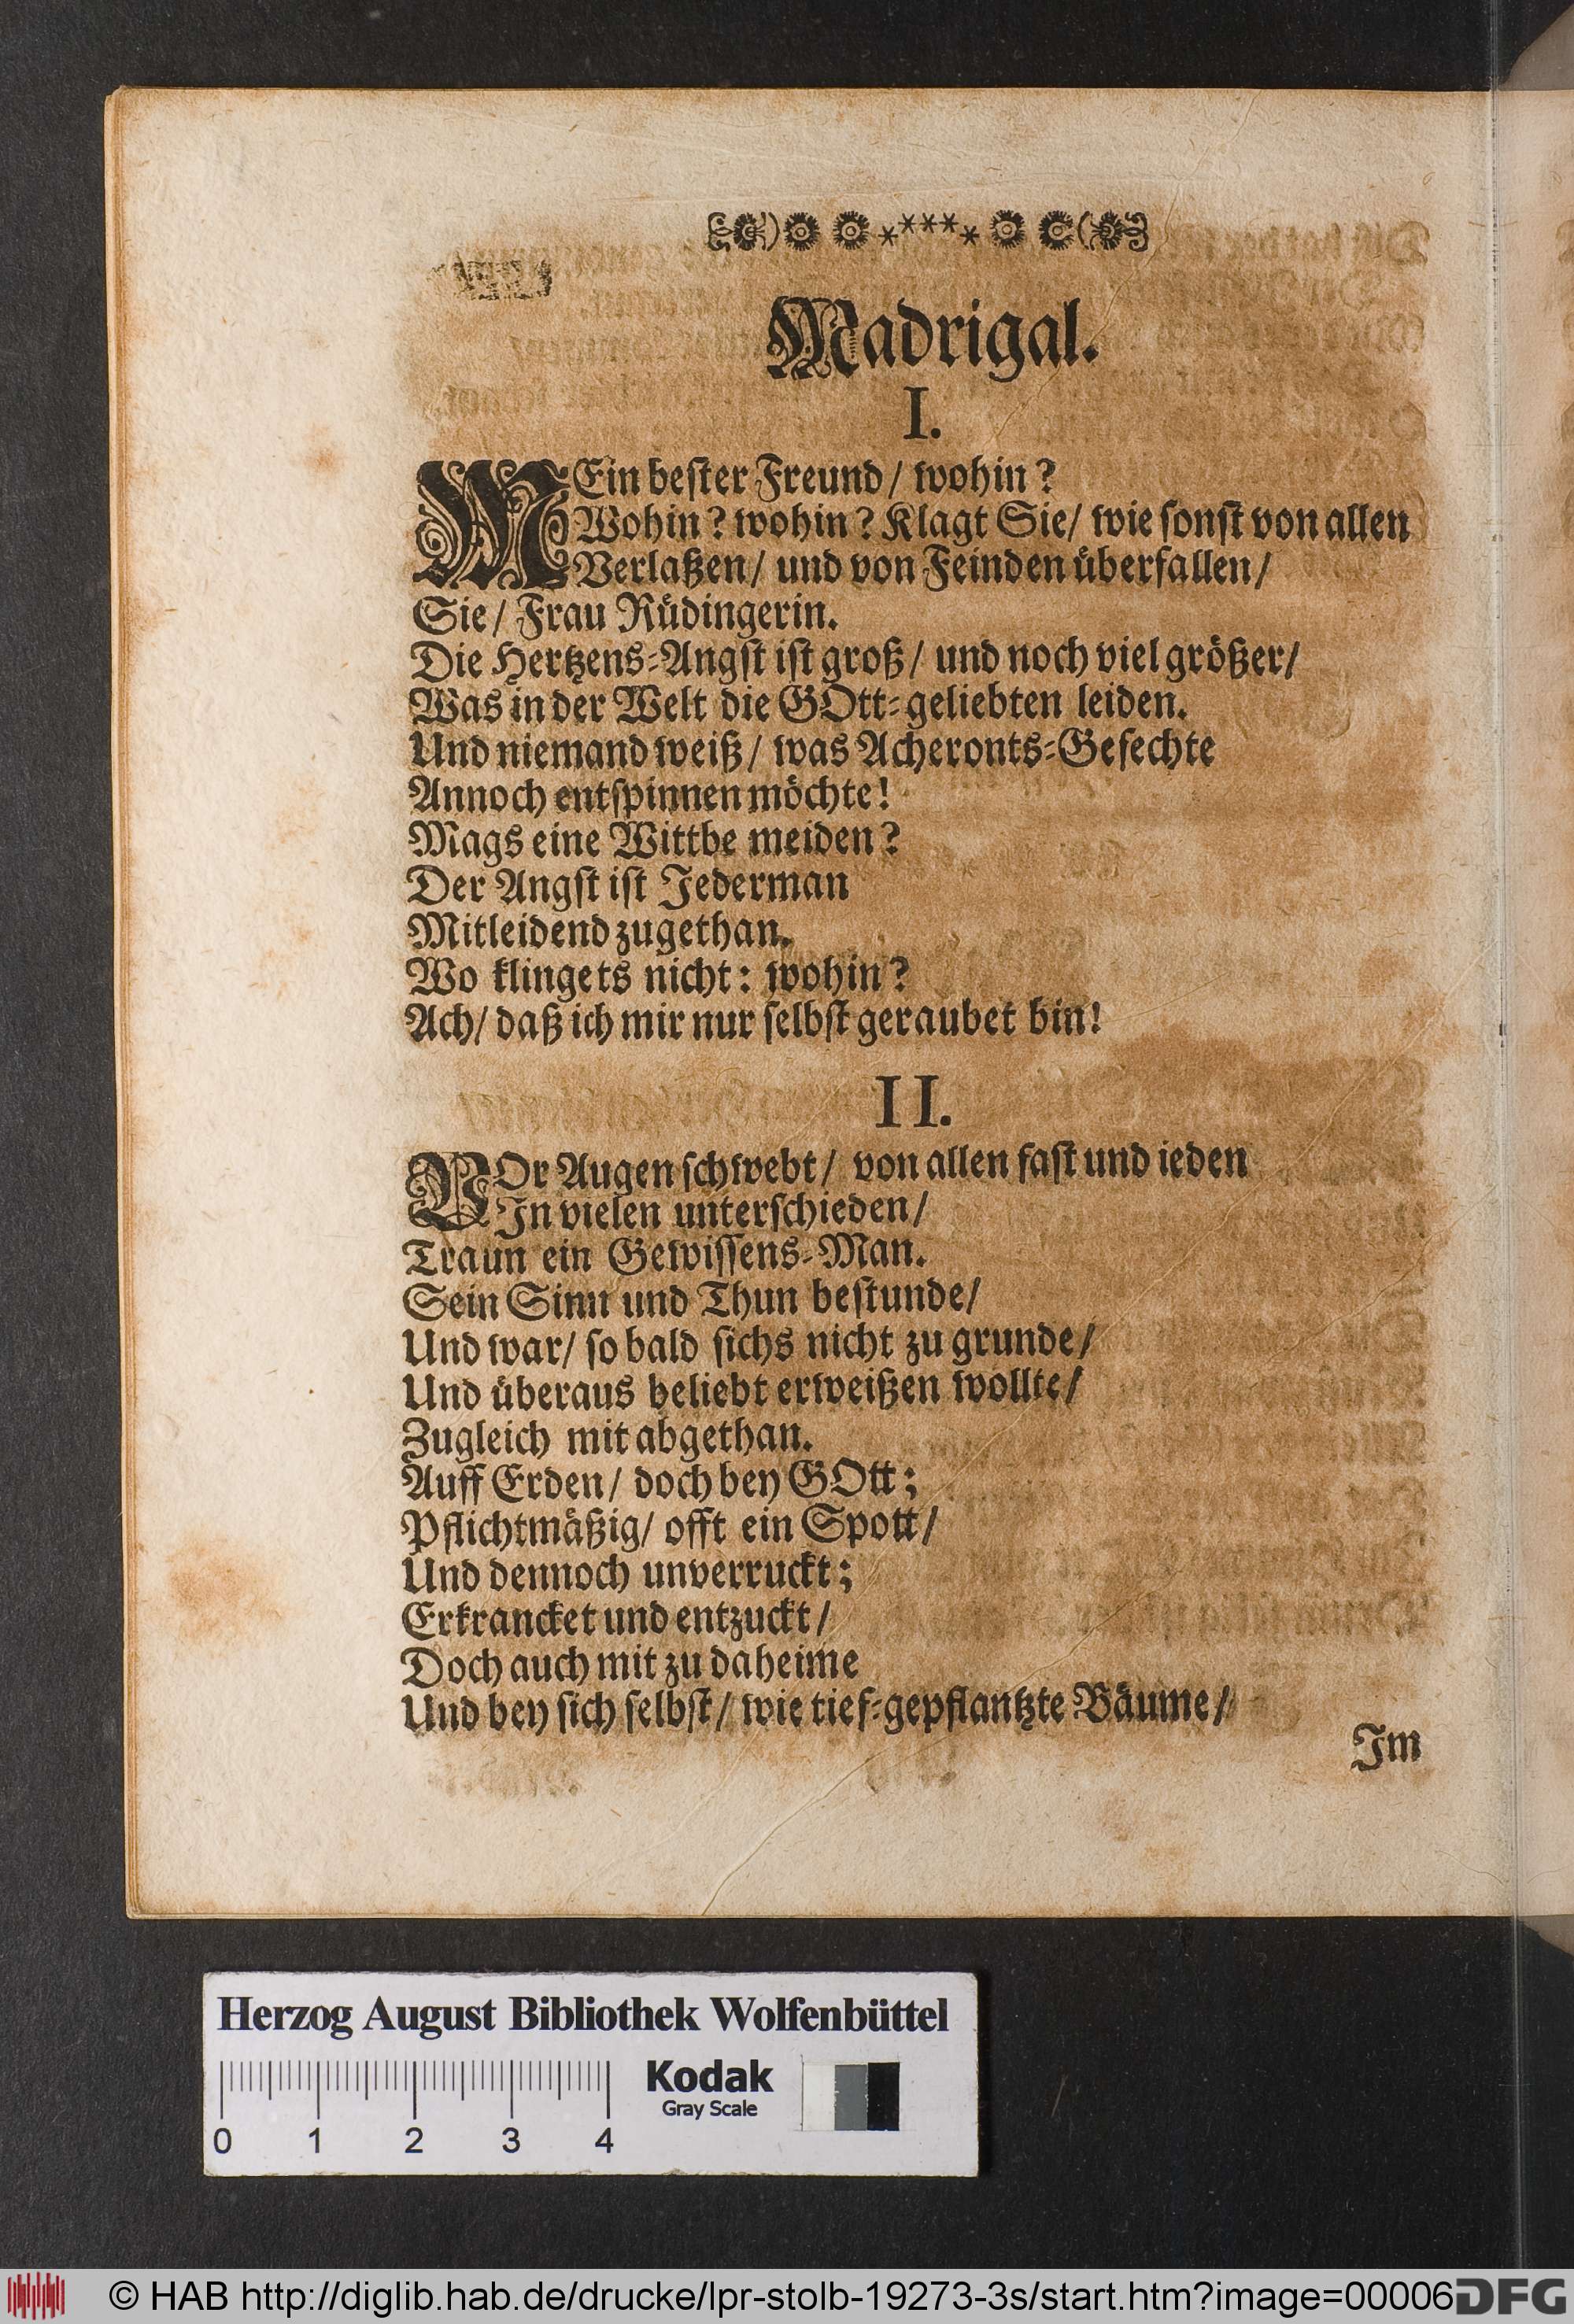 Madrigal.
I.
MEin bester Freund / wohin?
Wohin? wohin? Klagt Sie / wie sonst von allen
Verlaßen / und von Feinden überfallen /
Sie / Frau Rüdingerin.
Die Hertzens-Angst ist groß / und noch viel größer /
Was in der Welt die GOtt-geliebten leiden.
Und niemand weiß / was Acheronts-Gefechte
Annoch entspinnen möchte!
Mags eine Wittbe meiden?
Der Angst ist Jederman
Mitleidend zugethan.
Wo klingets nicht: wohin?
Ach / daß ich mir nur selbst geraubet bin!
II.
VOr Augen schwebt / von allen fast und ieden
In vielen unterschieden /
Traun ein Gewissens-Man.
Sein Sinn und Thun bestunde /
Und war / so bald sichs nicht zu grunde /
Und überaus beliebt erweißen wollte /
Zugleich mit abgethan.
Auff Erden / doch bey GOtt;
Pflichtmäßig / offt ein Spott /
Und dennoch unverruckt;
Erkrancket und entzuckt /
Doch auch mit zu daheime
Und bey sich selbst / wie tief-gepflantzte Bäume /
Im
Herzog August Bibliothek Wolfenbüttel
Kodak
Gray Scale
0 1 2 3 4
© HAB http://diglib.hab.de/drucke/lpr-stolb-19273-3s/start.htm?image=00006
DFG